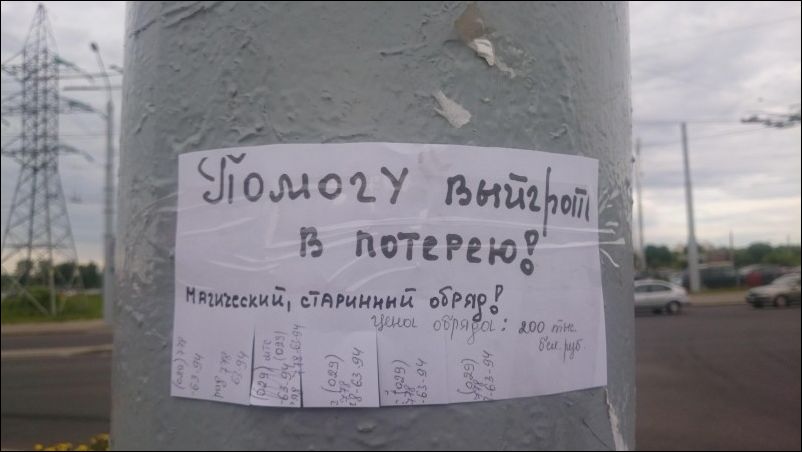 Помогу выйграт
в лотерею!
Магический, старинный обряд!
цена обряда: 200 тыс.
бел. руб.
(029) 778
-63-94
778
63-94
(029)
-63-94 (029)
778-63-94
(029)
778
-63-94
(029)
778
-63-94
(029)
778
-63-94